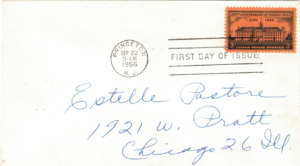 PRINCETON
SEP 22
9-AM
1956
N.J.
FIRST DAY OF ISSUE
Estelle Pastore
1921 W. Pratt
Chicago 26 Ill.